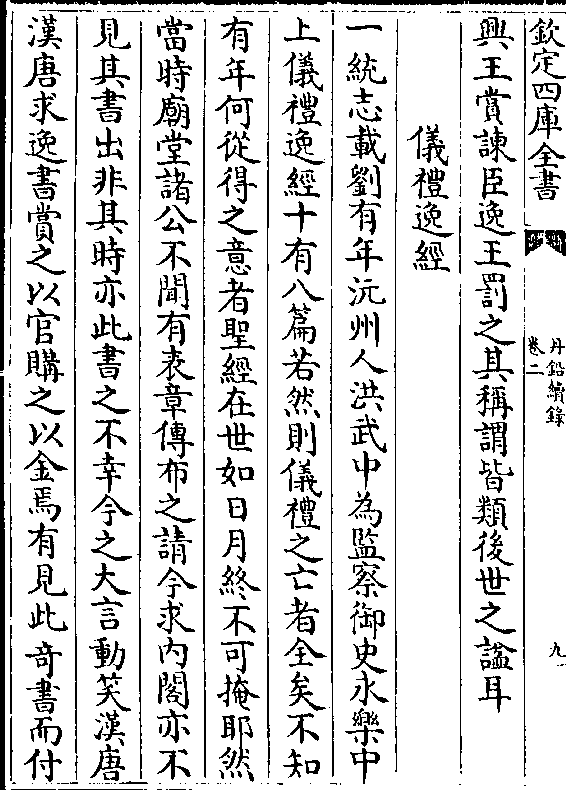 欽定四庫全書
丹鉛續錄
卷二
九
興王賞諫臣逸王罰之其稱謂皆類後世之諡耳
儀禮逸經
一統志載劉有年沅州人洪武中為監察御史永樂中
上儀禮逸經十有八篇若然則儀禮之亡者全矣不知
有年何從得之意者聖經在世如日月終不可掩耶然
當時廟堂諸公不聞有表章傳布之請今求內閣亦不
見其書出非其時亦此書之不幸今之大言動笑漢唐
漢唐求逸書賞之以官購之以金焉有見此奇書而付